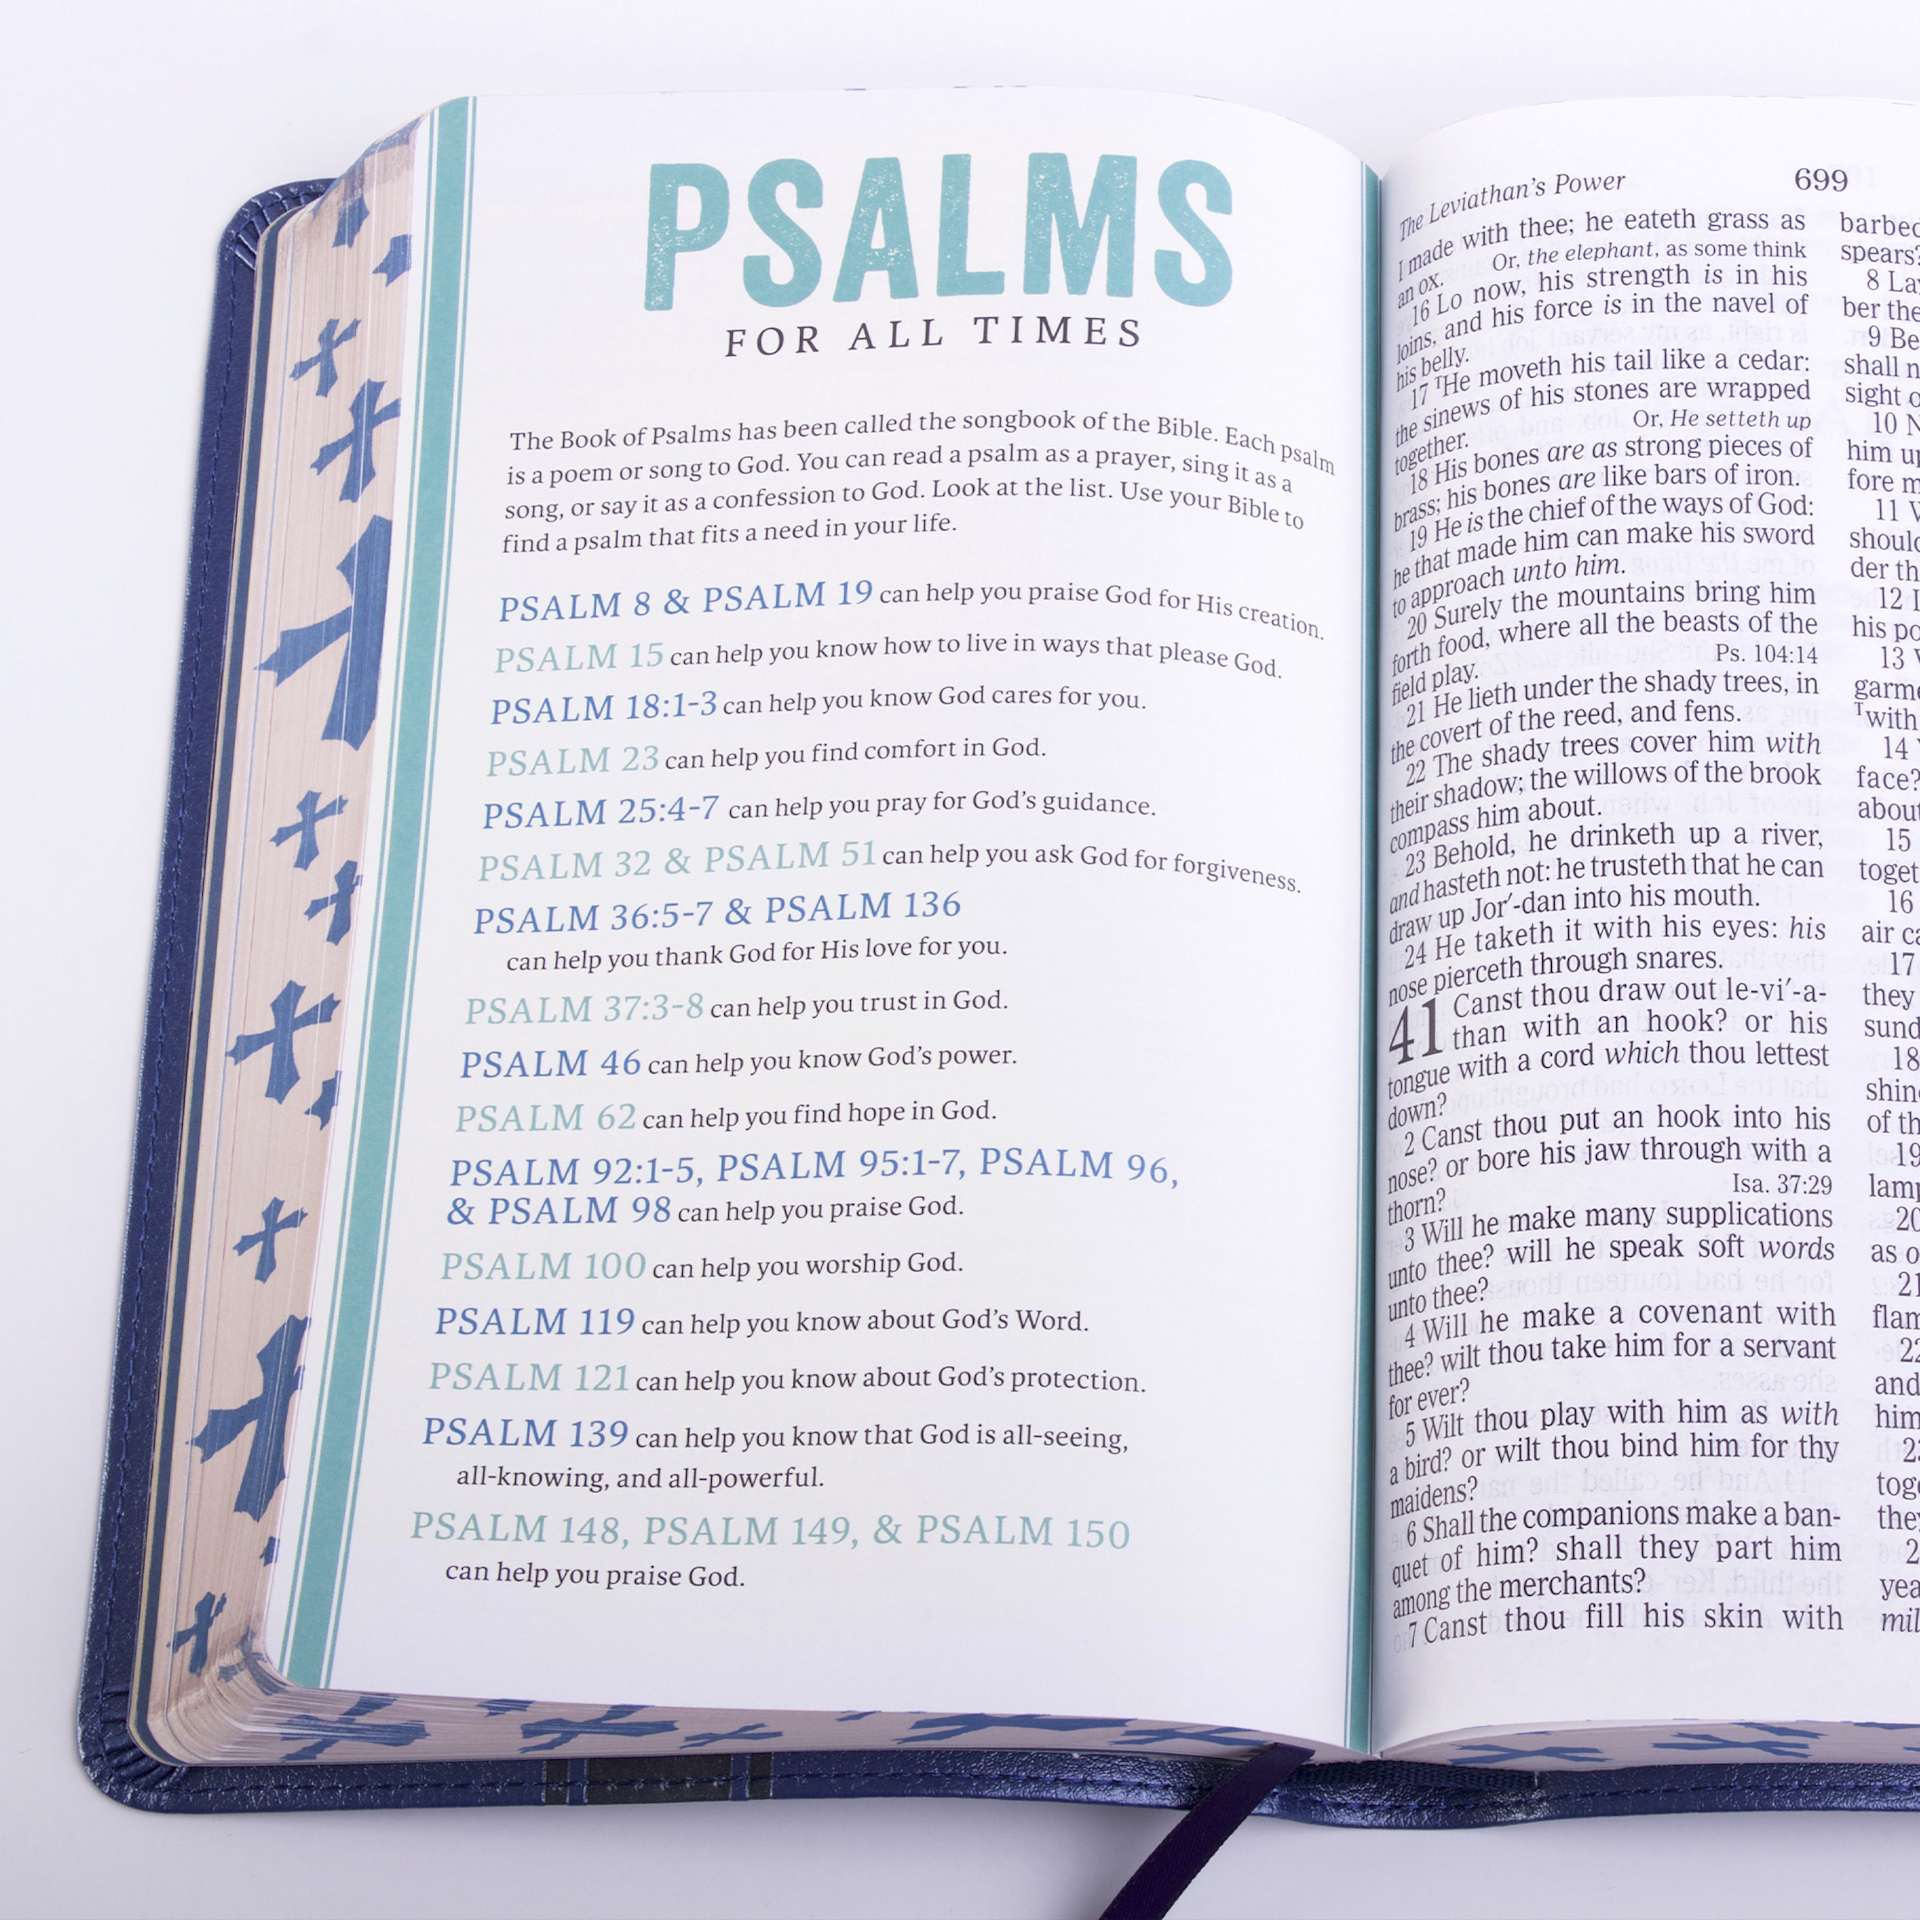 PSALMS
FOR ALL TIMES
The Book of Psalms has been called the songbook of the Bible. Each psalm
is a poem or song to God. You can read a psalm as a prayer, sing it as a
song, or say it as a confession to God. Look at the list. Use your Bible to
find a psalm that fits a need in your life.
PSALM 8 & PSALM 19 can help you praise God for His creation.
PSALM 15 can help you know how to live in ways that please God.
PSALM 18:1-3 can help you know God cares for you.
PSALM 23 can help you find comfort in God.
PSALM 25:4-7 can help you pray for God's guidance.
PSALM 32 & PSALM 51 can help you ask God for forgiveness.
PSALM 36:5-7 & PSALM 136
can help you thank God for His love for you.
PSALM 37:3-8 can help you trust in God.
PSALM 46 can help you know God's power.
PSALM 62 can help you find hope in God.
PSALM 92:1-5, PSALM 95:1-7, PSALM 96,
& PSALM 98 can help you praise God.
PSALM 100 can help you worship God.
PSALM 119 can help you know about God's Word.
PSALM 121 can help you know about God's protection.
PSALM 139 can help you know that God is all-seeing,
all-knowing, and all-powerful.
PSALM 148, PSALM 149, & PSALM 150
can help you praise God.
The Leviathan's Power 699
I made with thee; he eateth grass as
an ox. Or, the elephant, as some think
16 Lo now, his strength is in his
loins, and his force is in the navel of
his belly.
17 THe moveth his tail like a cedar:
the sinews of his stones are wrapped
together. Or, He setteth up
18 His bones are as strong pieces of
brass; his bones are like bars of iron.
19 He is the chief of the ways of God:
he that made him can make his sword
to approach unto him.
20 Surely the mountains bring him
forth food, where all the beasts of the
field play. Ps. 104:14
21 He lieth under the shady trees, in
the covert of the reed, and fens.
22 The shady trees cover him with
their shadow; the willows of the brook
compass him about.
23 Behold, he drinketh up a river,
and hasteth not: he trusteth that he can
draw up Jor′-dan into his mouth.
24 He taketh it with his eyes: his
nose pierceth through snares.
41 Canst thou draw out le-vi′-a-
than with an hook? or his
tongue with a cord which thou lettest
down?
2 Canst thou put an hook into his
nose? or bore his jaw through with a
thorn? Isa. 37:29
3 Will he make many supplications
unto thee? will he speak soft words
unto thee?
4 Will he make a covenant with
thee? wilt thou take him for a servant
for ever?
5 Wilt thou play with him as with
a bird? or wilt thou bind him for thy
maidens?
6 Shall the companions make a ban-
quet of him? shall they part him
among the merchants?
7 Canst thou fill his skin with
spears?
8
ber
9 Be
shall
sight
10
him
fore
11
12
his
13
Twith
14
face?
about
15
16
air
17
they
18
of
19
20
as
21
22
and
him